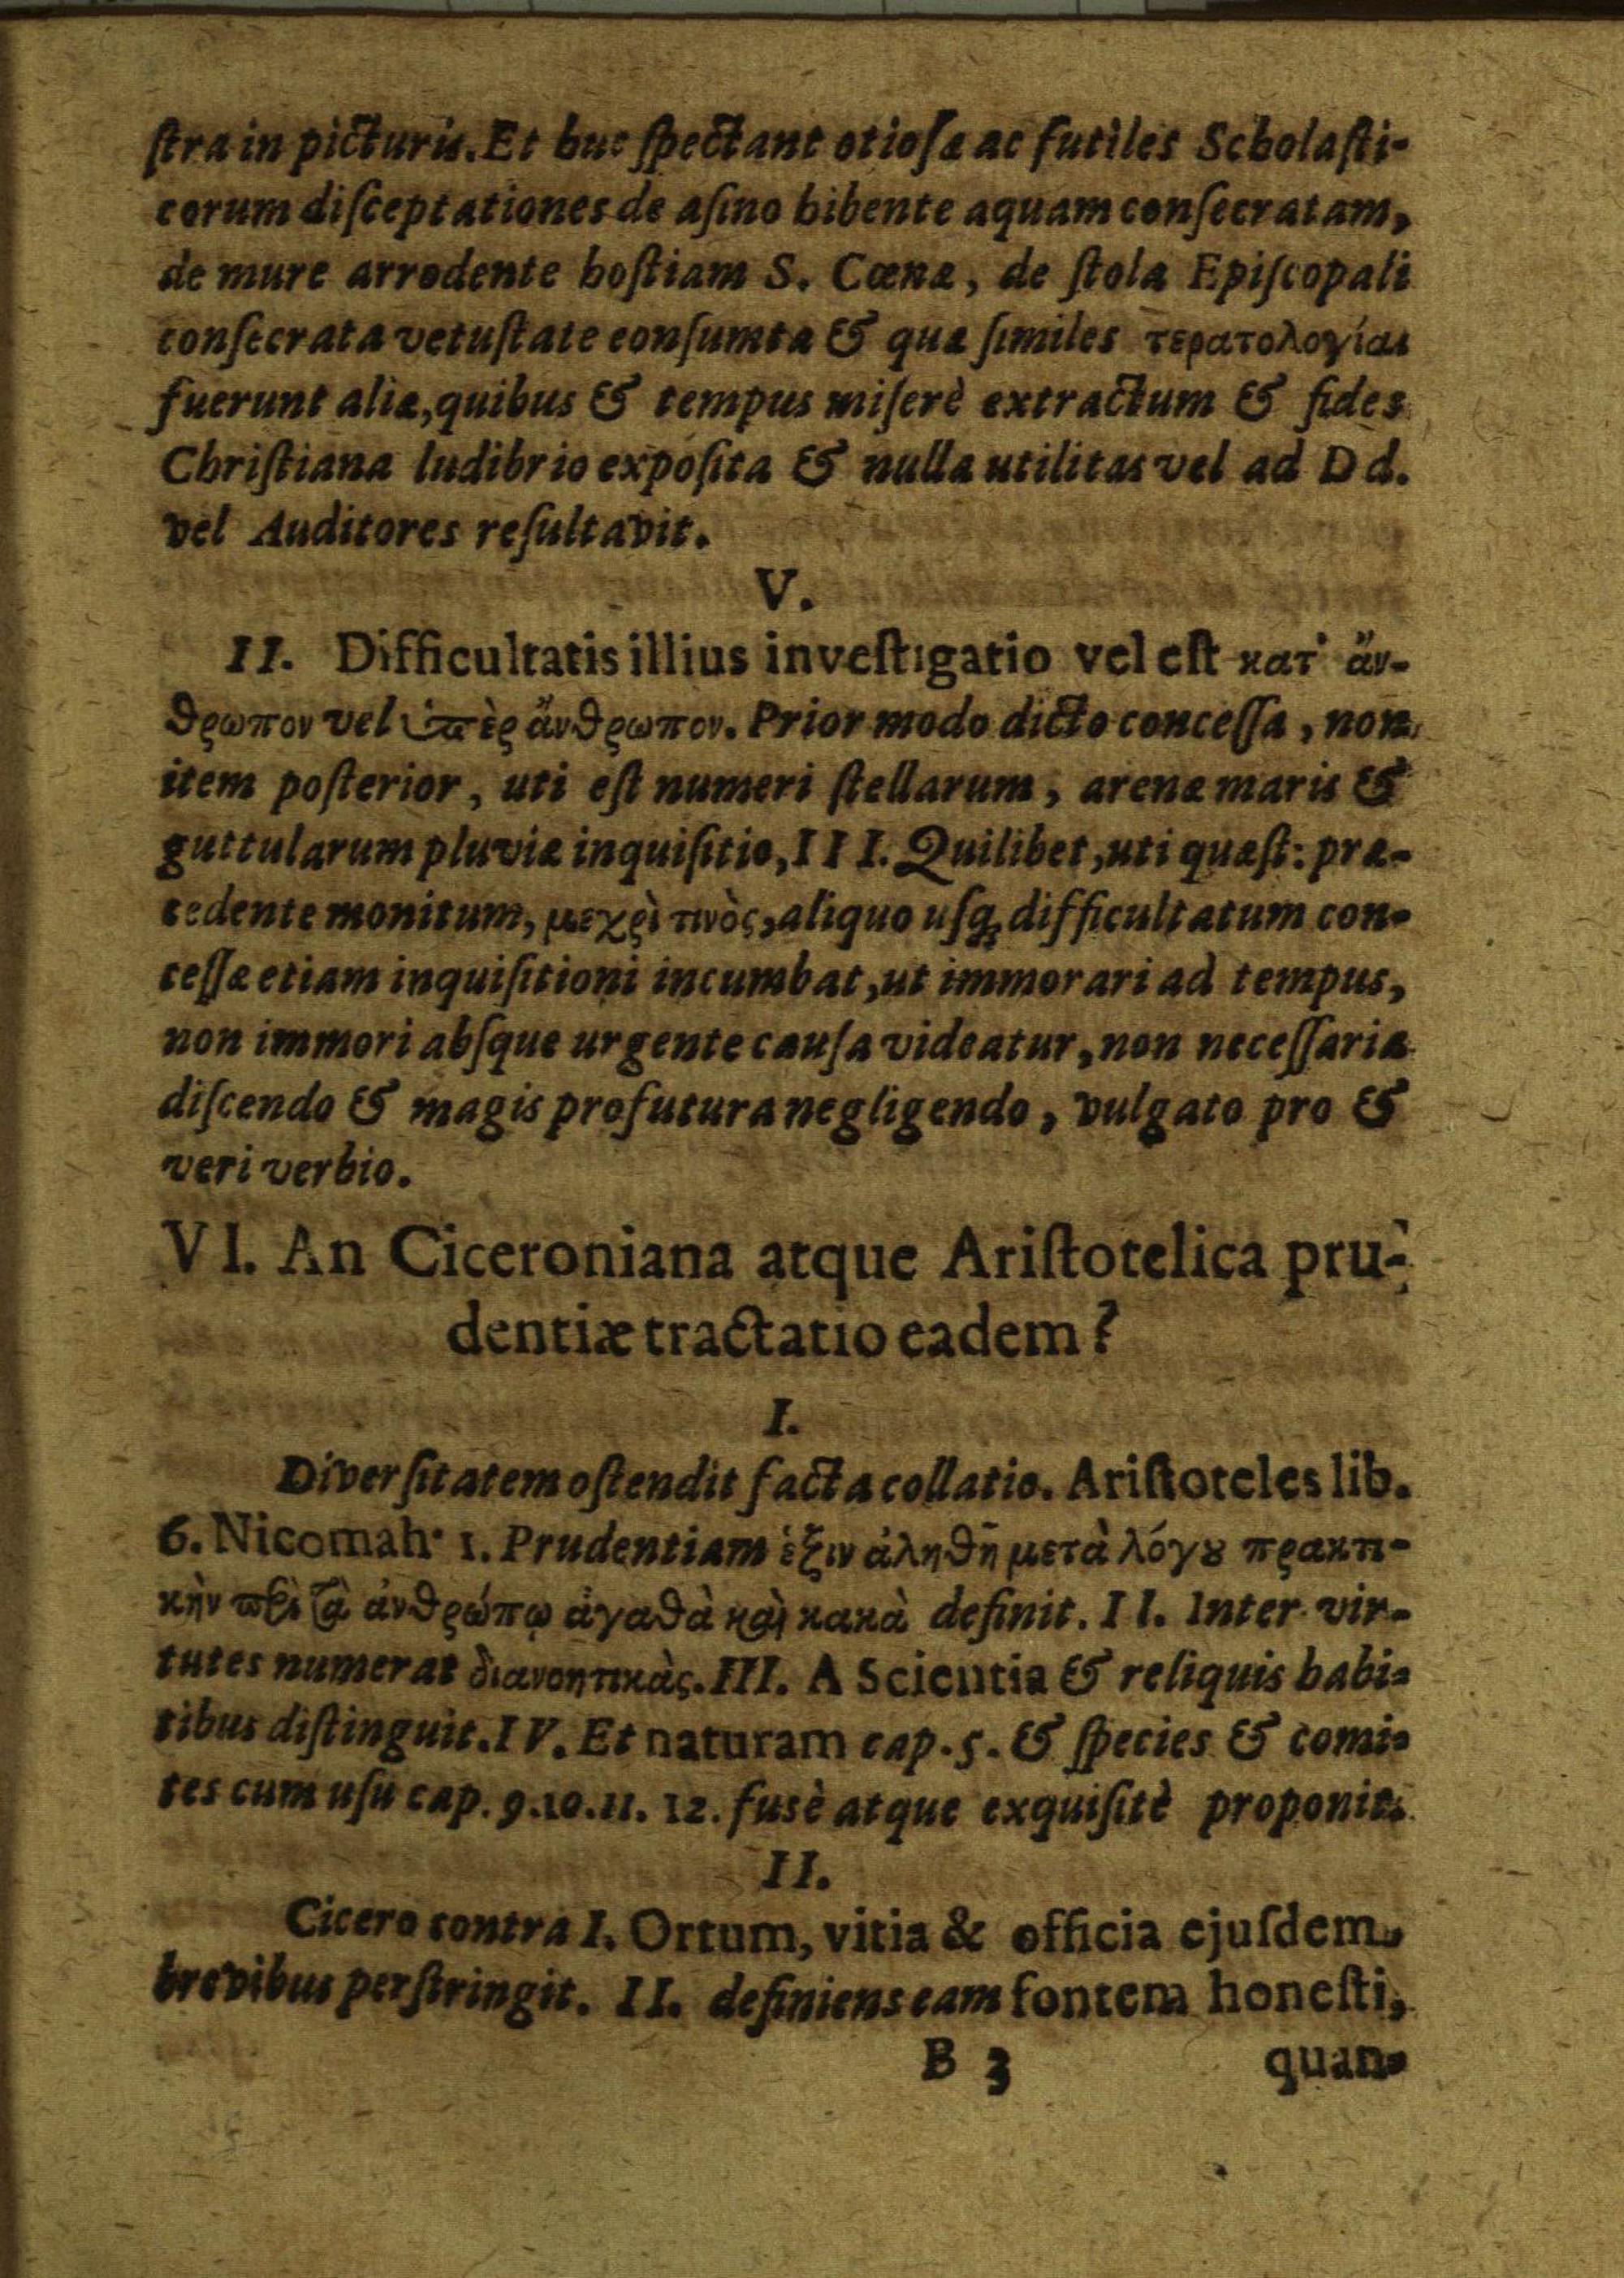 ſtra in picturis. Et huc ſpectant otioſæ ac futiles Scholaſti-
corum diſceptationes de aſino bibente aquam conſecratam,
de mure arrodente hoſtiam S. Cœnæ, de ſtola Epiſcopali
conſecrata vetuſtate conſumta & quæ ſimiles τερατολογίαι
fuerunt aliæ, quibus & tempus miſerè extractum & fides
Chriſtiana ludibrio expoſita & nulla utilitas vel ad D d.
vel Auditores reſultavit.
V.
II. Difficultatis illius inveſtigatio vel eſt κατ' ἄν-
θρωπον vel ὑπὲρ ἄνθρωπον. Prior modo dicto conceſſa, non
item poſterior, uti eſt numeri ſtellarum, arenæ maris &
guttularum pluviæ inquiſitio, III. Quilibet, uti quæſt: præ-
cedente monitum, μεχρὶ τινὸς, aliquo uſq; difficultatum con-
ceſſæ etiam inquiſitioni incumbat, ut immorari ad tempus,
non immori abſque urgente cauſa videatur, non neceſſaria
diſcendo & magis profutura negligendo, vulgato pro &
veri verbio.
VI. An Ciceroniana atque Ariſtotelica pru-
dentiæ tractatio eadem?
I.
Diverſitatem oſtendit facta collatio. Ariſtoteles lib.
6. Nicomah. 1. Prudentiam ἑξιν ἀληθῆ μετὰ λόγȣ πρακτι-
κὴν περὶ τὰ ἀνθρώπῳ ἀγαθὰ καὶ κακὰ definit. II. Inter vir-
tutes numerat διανοητικὰς. III. A Scientia & reliquis habi-
tibus diſtinguit. IV. Et naturam cap. 5. & ſpecies & comi-
tes cum uſu cap. 9.10.11. 12. fusè atque exquiſitè proponit.
II.
Cicero contra I. Ortum, vitia & officia ejuſdem,
brevibus perſtringit. II. definiens eam fontem honeſti,
B 3 quan-